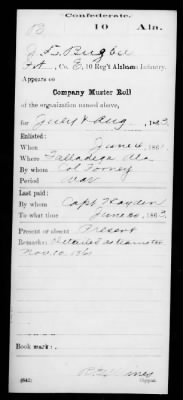 Confederate.
B 10 Ala.
J. L. Bugbee
Pvt., Co. E, 10 Reg't Alabama Infantry.
Appears on
Company Muster Roll
of the organization named above,
for July & Aug, 1863
Enlisted:
When June 4, 186
Where Talladega Ala
By whom Col Forney
Period War
Last paid:
By whom Capt Hayden
To what time June 30, 1863
Present or absent Present
Remarks: Detailed as teamster
Nov. 10, 186
Book mark:
(642)
Copyist.